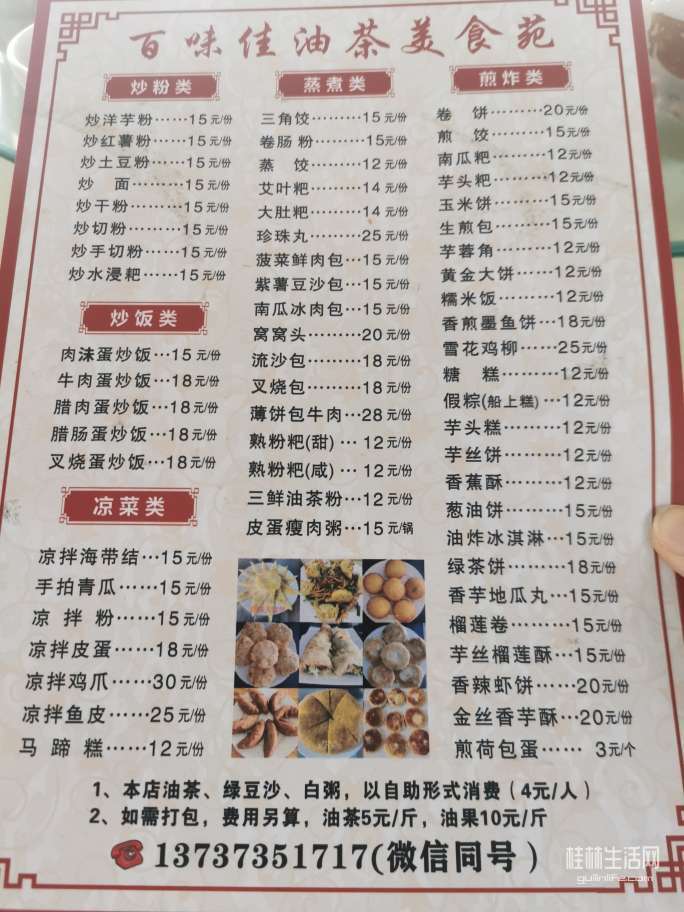 百味佳油茶美食苑
炒粉类
炒洋芋粉……15元/份
炒红薯粉……15元/份
炒土豆粉……15元/份
炒 面………15元/份
炒干粉………15元/份
炒切粉………15元/份
炒手切粉……15元/份
炒水浸粑……15元/份
炒饭类
肉沫蛋炒饭…15元/份
牛肉蛋炒饭…18元/份
腊肉蛋炒饭…18元/份
腊肠蛋炒饭…18元/份
叉烧蛋炒饭…18元/份
凉菜类
凉拌海带结…15元/份
手拍青瓜……15元/份
凉 拌 粉……15元/份
凉拌皮蛋……18元/份
凉拌鸡爪……30元/份
凉拌鱼皮……25元/份
马 蹄 糕……12元/份
蒸煮类
三角饺………15元/份
卷肠粉………15元/份
蒸 饺………12元/份
艾叶粑………14元/份
大肚粑………14元/份
珍珠丸………25元/份
菠菜鲜肉包…15元/份
紫薯豆沙包…15元/份
南瓜冰肉包…15元/份
窝窝头………20元/份
流沙包………18元/份
叉烧包………18元/份
薄饼包牛肉…28元/份
熟粉粑(甜)…12元/份
熟粉粑(咸)…12元/份
三鲜油茶粉…12元/份
皮蛋瘦肉粥…15元/锅
煎炸类
卷 饼………20元/份
煎 饺………15元/份
南瓜粑………12元/份
芋头粑………12元/份
玉米饼………15元/份
生煎包………15元/份
芋蓉角………12元/份
黄金大饼……12元/份
糯米饭………12元/份
香煎墨鱼饼…18元/份
雪花鸡柳……25元/份
糖 糕………12元/份
假粽(船上糕)…12元/份
芋头糕………12元/份
芋丝饼………12元/份
香蕉酥………12元/份
葱油饼………15元/份
油炸冰淇淋…15元/份
绿茶饼………18元/份
香芋地瓜丸…15元/份
榴莲卷………15元/份
芋丝榴莲酥…15元/份
香辣虾饼……20元/份
金丝香芋酥…20元/份
煎荷包蛋…… 3元/个
1、本店油茶、绿豆沙、白粥，以自助形式消费（4元/人）
2、如需打包，费用另算，油茶5元/斤，油果10元/斤
☎13737351717(微信同号)
桂林生活网
guilinlife.com